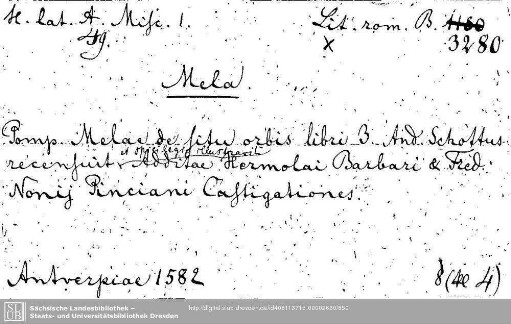 H. lat. A. Misc. 1. Lit. rom. B. 1180
49. x 3280
Mela
Pomp. Melae de situ orbis libri 3. And. Schottus
et spicilegio illustravit
recensuit. Additae Hermolai Barbari & Fred.
Nonij Pinciani Castigationes.
Antverpiae 1582 8 (4e 4)
SLUB
Sächsische Landesbibliothek –
Staats- und Universitätsbibliothek Dresden